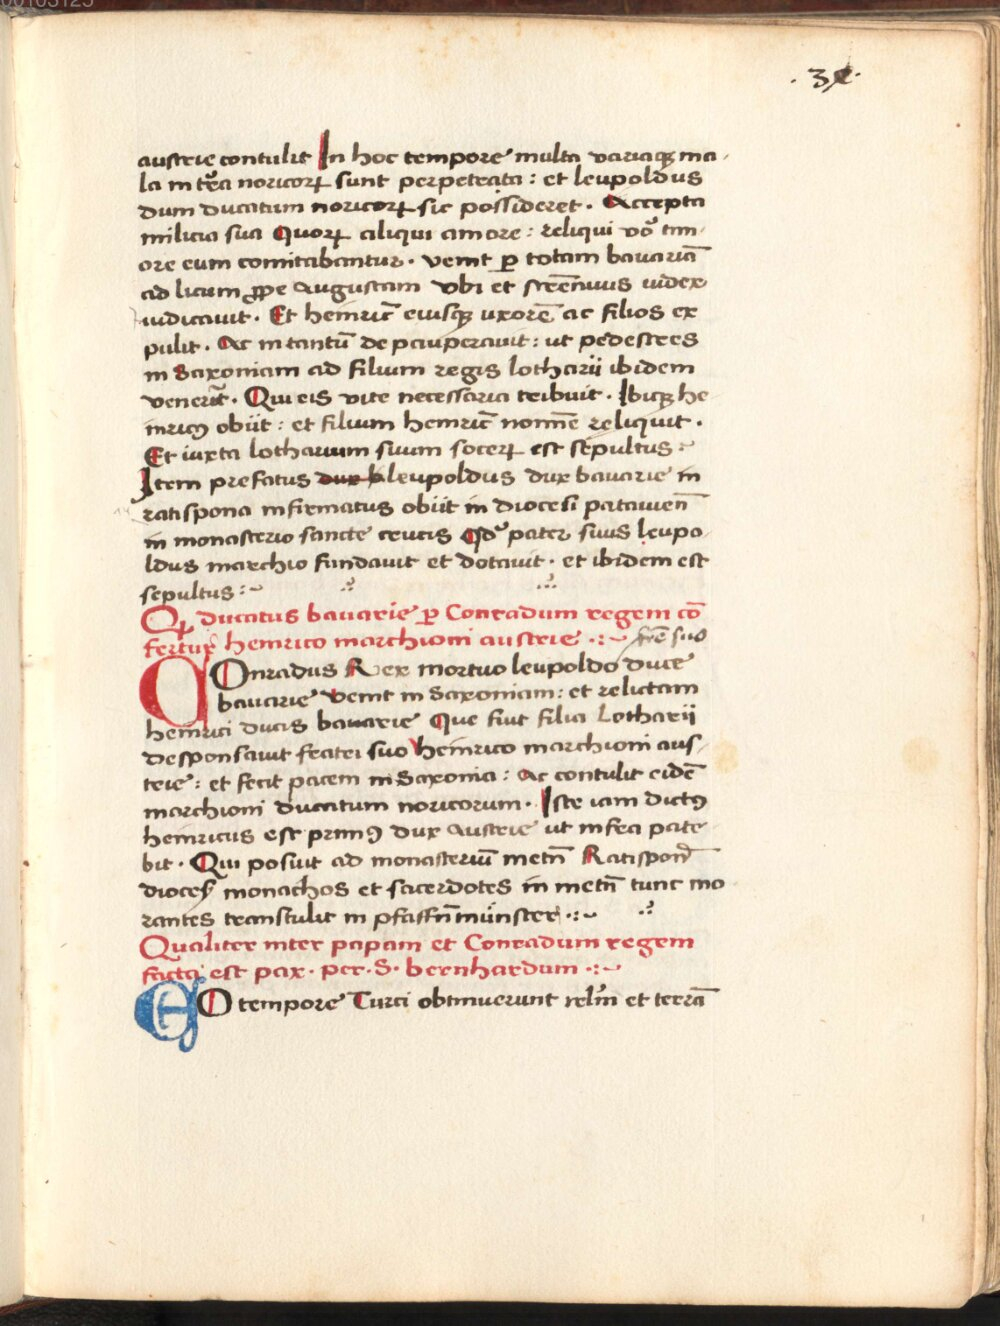 00103125
. 32 .
austrie contulit In hoc tempore multa variaqꝫ ma-
la in tr̃a noricoꝝ sunt perpetrata : et leupoldus
dum ducatum noricoꝝ sic possideret . Accepta
milicia sua Quoꝝ aliqui amore : reliqui vo᷑ tim-
ore eum comitabantur . venit ꝑ totam bauariā
ad licum ꝓpe Augustam vbi et strēnuus iudex
iudicauit . Et heinric̄ eiusqꝫ uxorē ac filios ex
pulit . Ac in tantū depauperauit : ut pedestres
in Saxoniam ad filium regis lotharii ibidem
venerūt . Qui eis vite necessaria tribuit . Ibiqꝫ he
inricꝰ obiit : et filium heinric̄ nomīe reliquit .
Et iuxta lotharium suum soceꝝ est sepultus :
Item prefatus dux b leupoldus dux bauarie in
ratispona infirmatus obiit in diocesi patauien̄
in monasterio sancte crucis Qd᷑ pater suus leupo
ldus marchio fundauit et dotauit . et ibidem est
sepultus :~
Qꝫ ducatus bauarie ꝑ Conradum regem cō
fertur heinrico marchioni austrie . : ~ fr̄e suo
COnradus Rex mortuo leupoldo duce
bauarie venit in Saxoniam : et relictam
heinrici ducis bauarie Que fuit filia Lotharii
desponsauit fratri suo heinrico marchioni aus-
trie : et fecit pacem in Saxonia : Ac contulit eidē
marchioni ducatum noricorum . Iste iam dictꝰ
heinricus est primꝰ dux Austrie ut infra pate
bit . Qui posuit ad monasteriū meten̄ Ratispon̄
diocesꝭ monachos et sacerdotes in meten̄ tunc mo
rantes transtulit in pfaffn̄münster . : ~
Qualiter inter papam et Conradum regem
facta est pax . per . S . bernhardum . : ~
EO tempore Turci obtinuerunt ier̄lm et terrā